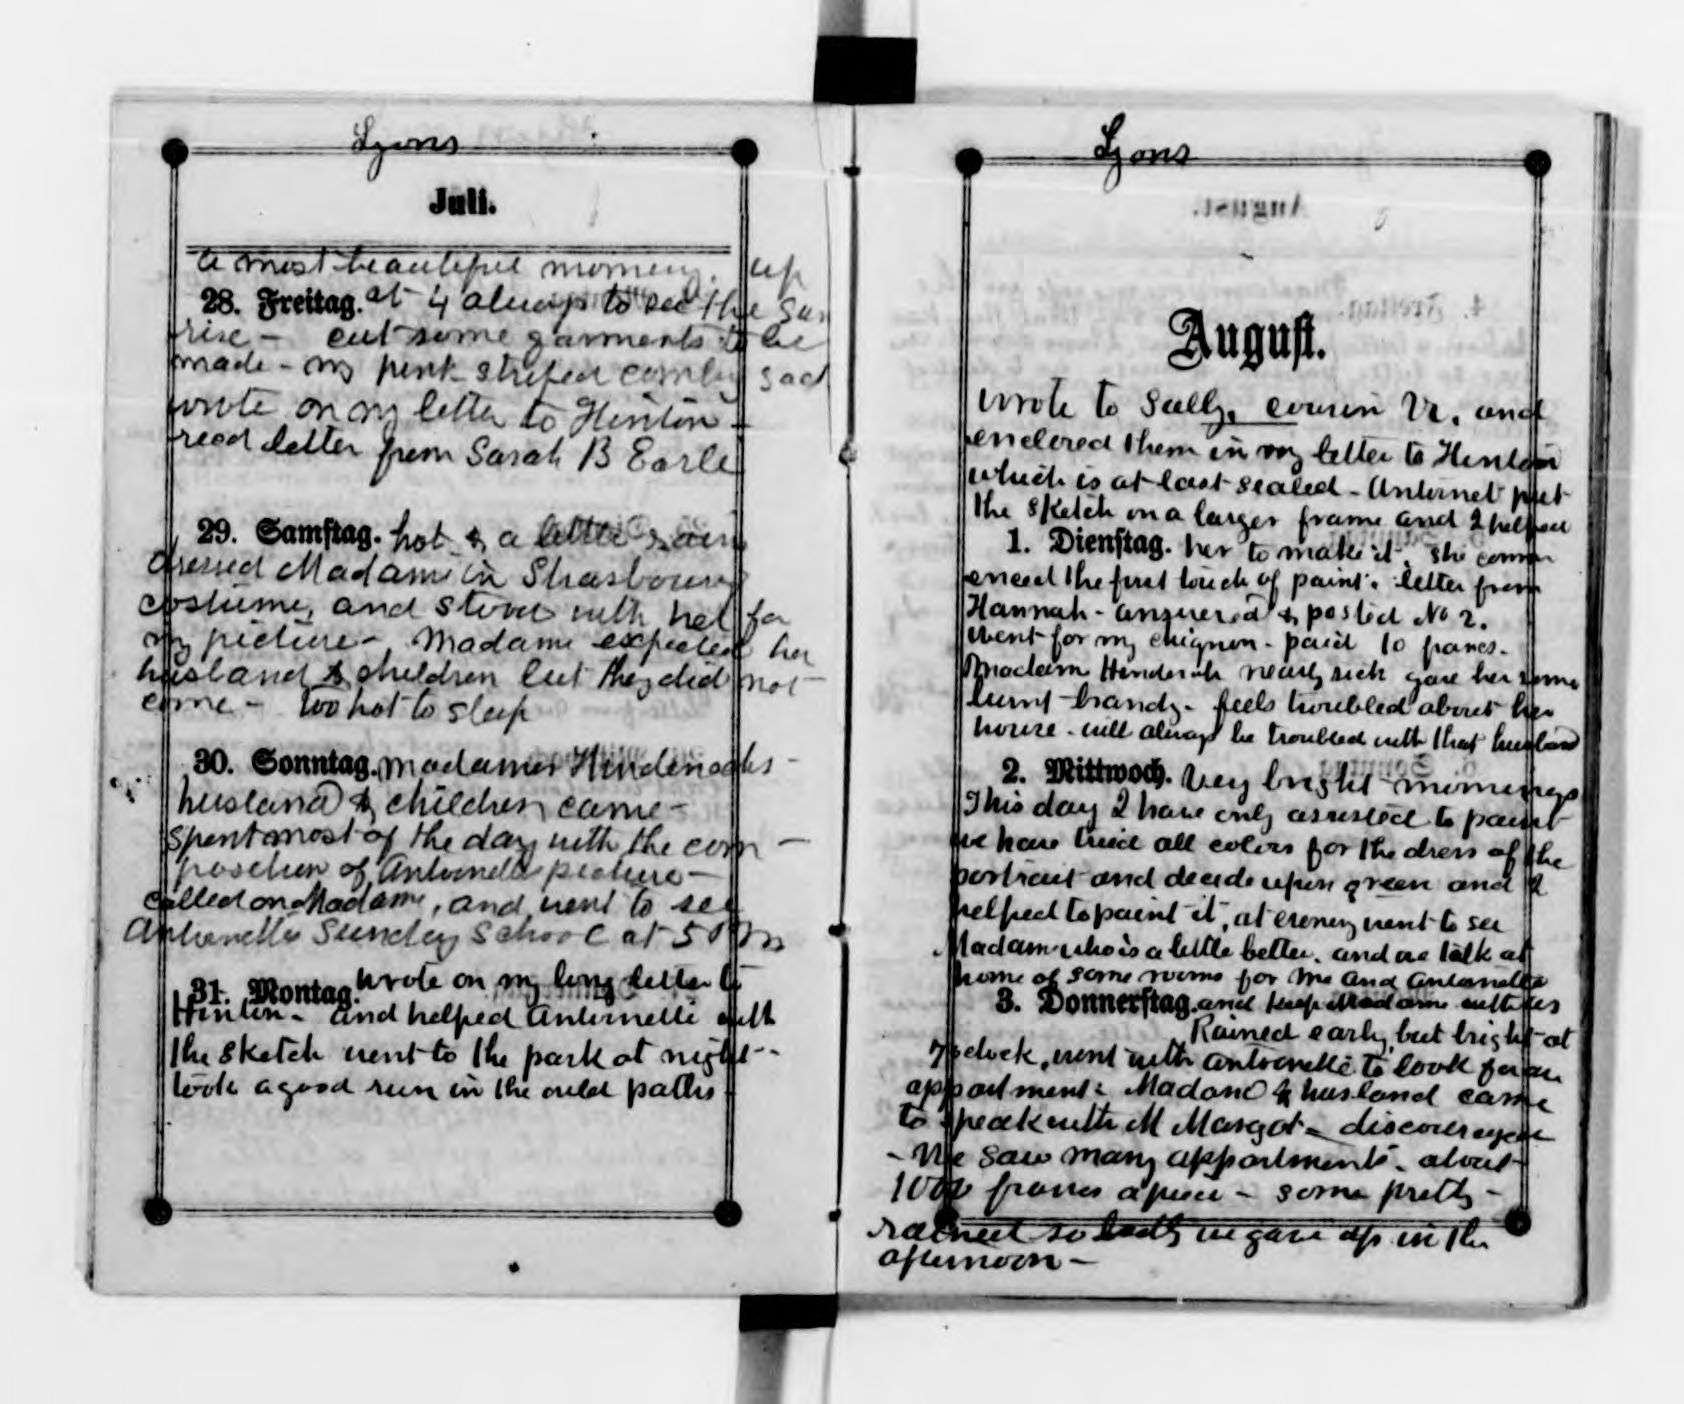 Lyons
Juli.
a most beautiful morning. up
28. Freitag. at 4 always to see the Sun
rise - cut some garments to be
made - my pink striped comby sack
wrote on my letter to Hinton -
read letter from Sarah B Earle
29. Samstag. hot & a little rain
dressed Madame in Strasbourg
costume, and stood with her for
my picture - Madame expected her
husband & children but they did not
come - too hot to sleep
30. Sonntag. Madames Hindenachs -
husband & children came -
spent most of the day with the com -
position of Antoinettes picture -
called on Madame, and went to see
Antoinettes Sunday School at 5 P M
31. Montag. wrote on my long letter to
Hinton - and helped Antoinette with
the sketch went to the park at night -
took a good run in the wild paths -
Lyons
August.
wrote to Sally, cousin Vr. and
enclosed them in my letter to Hinton
which is at last sealed - Antoinet put
the sketch on a larger frame and I helped
1. Dienstag. her to make it. she comm
enced the first touch of paint. letter from
Hannah - answered & posted No 2.
went for my chignon - paid 10 francs -
Madam Hindenach nearly sick gave her some
burnt brandy - feels troubled about her
house - will always be troubled with that husband
2. Mittwoch. Very bright mornings
This day I have only assisted to paint
we have tried all colors for the dress of the
portrait and decide upon green and I
helped to paint it, at evening went to see
Madam who is a little better. and we talk at
home of some rooms for me and Antoinette
3. Donnerstag. and keep Madame with us
Rained early, but bright at
7 oclock, went with Antoinette to look for an
appartment. Madam & husband came
to speak with M Margot - discouraged
- We saw many appartments - about
1000 francs apiece - some pretty -
rained so badly we gave up in the
afternoon -